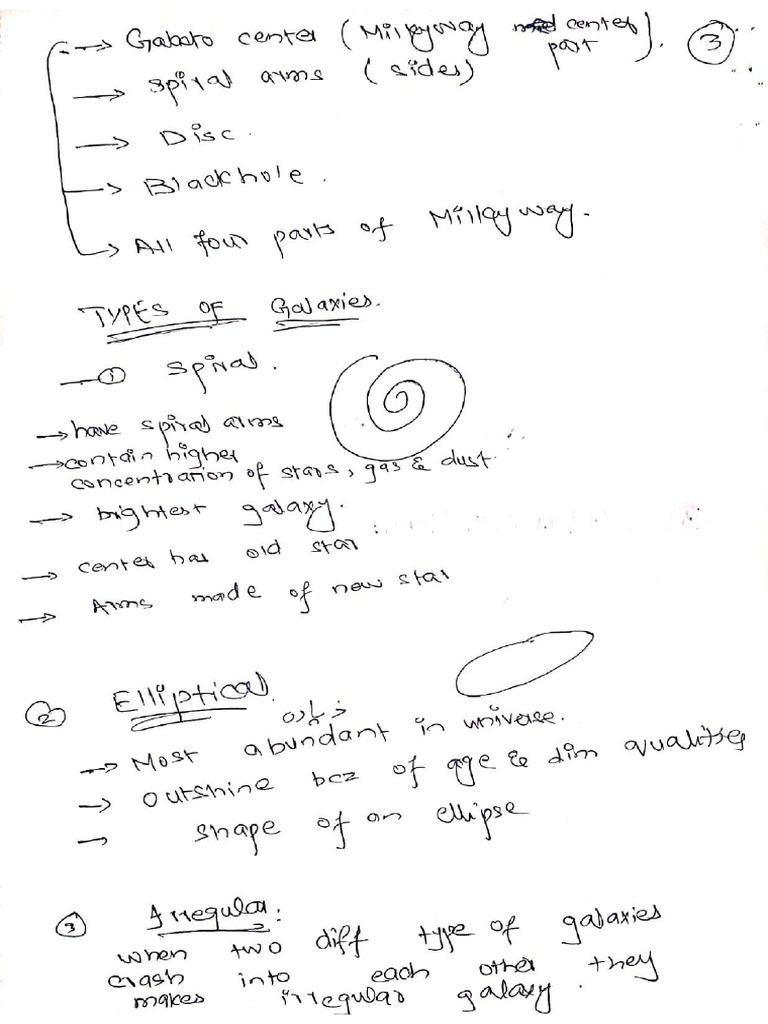 → Galato center (Milkyway center part). ③
→ spiral arms (sides)
→ Disc.
→ Blackhole.
→ All four parts of Milkyway.
TYPES OF Galaxies.
① spiral.
→ have spiral arms
→ contain higher
concentration of stars, gas & dust.
→ brightest galaxy.
→ center has old star
→ Arms made of new star
② Elliptical
زیادہ
→ Most abundant in universe.
→ outshine bcz of age & dim qualities
→ shape of an ellipse
③ Irregular:
when two diff type of galaxies
crash into each other they
makes irregular galaxy.